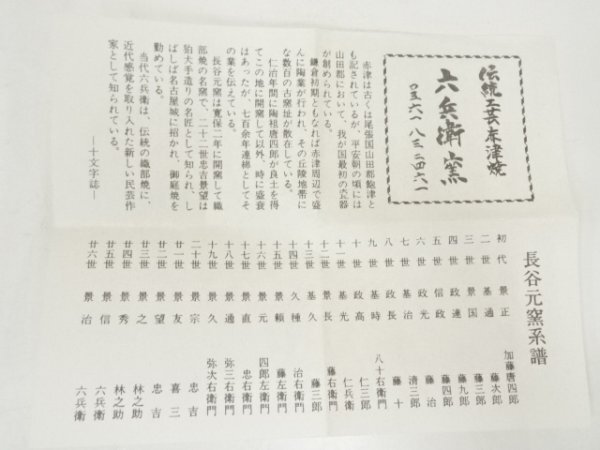 伝統工芸赤津焼
六兵衛窯
〇五六一-八二-二四六一
赤津は古くは尾張国山田郡飽津と
も記されているが、平安朝の頃には
山田郡において、我が国最初の瓷器
が創められている。
鎌倉初期ともなれば赤津周辺で盛
んに陶業が行われ、その丘陵地帯に
な数百の古窯址が散在している。
仁治年間に陶祖唐四郎が良土を得
てこの地に開窯して以外、時に盛衰
はあったが、七百余年連綿としてそ
の業を伝えている。
長谷元窯は寛保二年に開窯して織
部焼の名窯で、二十二世忠吉景望は
狛犬手造りの名匠として知られ、し
ばしば名古屋城に招かれ、御庭焼を
勤めている。
当代六兵衛は、伝統の織部焼に、
近代感覚を取り入れた新しい民芸作
家として知られている。
―十文字誌―
長谷元窯系譜
初代 景正 加藤唐四郎
二世 基通 藤次郎
三世 景国 藤三郎
四世 政連 藤九郎
五世 信政 藤四郎
六世 政光 藤治
七世 基治 清二郎
八世 政長 藤十
九世 基時 八十右衛門
十世 政高 仁三郎
十一世 基光 仁兵衛
十二世 景長 藤右衛門
十三世 基久 藤三郎
十四世 久種 治右衛門
十五世 景頼 藤左衛門
十六世 景元 四郎左衛門
十七世 景直 忠右衛門
十八世 景通 弥三右衛門
十九世 景久 弥次右衛門
二十世 景宗 忠吉
廿一世 景友 喜三
廿二世 景望 忠吉
廿三世 景之 林之助
廿四世 景秀 林之助
廿五世 景信 六兵衛
廿六世 景治 六兵衛